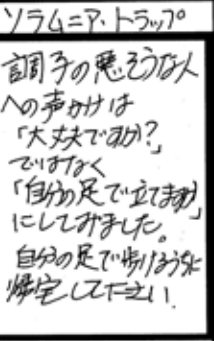 ソラムニア・トラップ
調子の悪そうな人
への声かけは
「大丈夫ですか?」
ではなく
「自分の足で立てますか」
にしてみました。
自分の足で歩けるうちに
帰宅して下さい